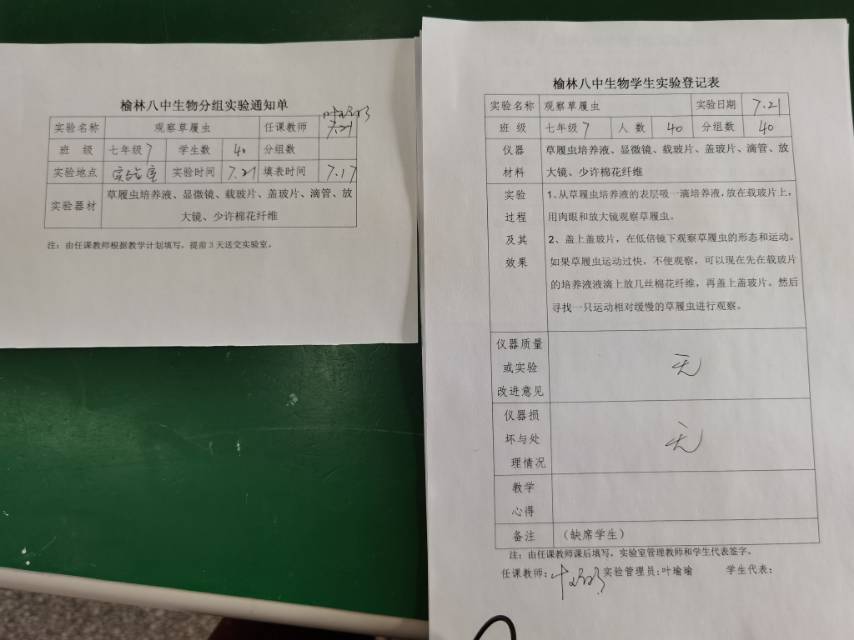 榆林八中生物分组实验通知单
实验名称 观察草履虫 任课教师
班 级 七年级7 学生数 40 分组数
实验地点 实验室 实验时间 7.21 填表时间 7.17
实验器材 草履虫培养液、显微镜、载玻片、盖玻片、滴管、放
大镜、少许棉花纤维
注：由任课教师根据教学计划填写，提前3天送交实验室。
榆林八中生物学生实验登记表
实验名称 观察草履虫 实验日期 7.21
班 级 七年级7 人 数 40 分组数 40
仪器 草履虫培养液、显微镜、载玻片、盖玻片、滴管、放
材料 大镜、少许棉花纤维
实验 1、从草履虫培养液的表层吸一滴培养液，放在载玻片上，
过程 用肉眼和放大镜观察草履虫。
及其 2、盖上盖玻片，在低倍镜下观察草履虫的形态和运动。
效果 如果草履虫运动过快，不便观察，可以现在先在载玻片
的培养液液滴上放几丝棉花纤维，再盖上盖玻片。然后
寻找一只运动相对缓慢的草履虫进行观察。
仪器质量
或实验 无
改进意见
仪器损
坏与处 无
理情况
教学
心得
备注 （缺席学生）
注：由任课教师课后填写，实验室管理教师和学生代表签字。
任课教师： 实验管理员：叶瑜瑜 学生代表：